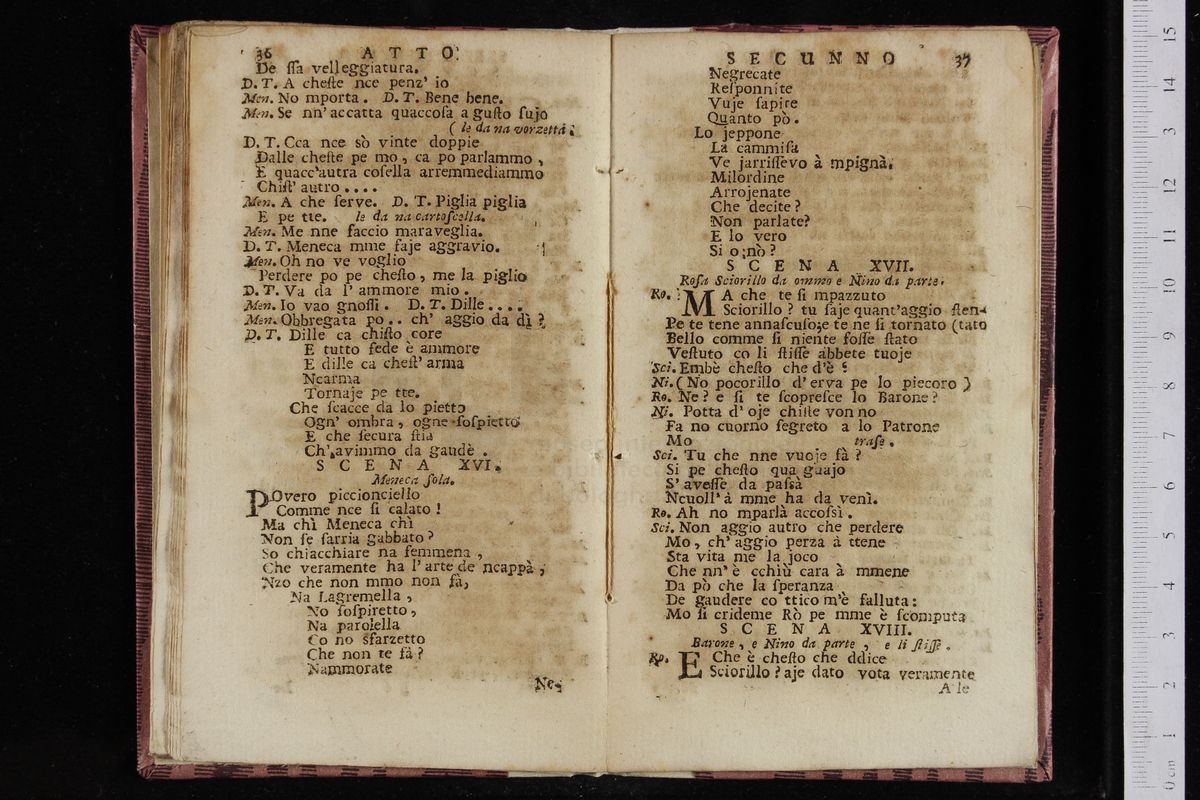 36 A T T O
De ſſa velleggiatura.
D. T. A cheſte nce penz' io
Men. No mporta. D. T. Bene bene.
Men. Se nn' accatta quaccoſa a guſto ſujo
( le da na vorzetta.
D. T. Cca nce sò vinte doppie
Dalle cheſte pe mo, ca po parlammo,
E quacc'autra coſella arremmediammo
Chiſt' autro....
Men. A che ſerve. D. T. Piglia piglia
E pe tte. le da na cartoſcella.
Men. Me nne faccio maraveglia.
D. T. Meneca mme faje aggravio.
Men. Oh no ve voglio
Perdere po pe cheſto, me la piglio
D. T. Va da l' ammore mio.
Men. Io vao gnoſſi. D. T. Dille....
Men. Obbregata po.. ch' aggio da dì?
D. T. Dille ca chiſto core
E tutto fede è ammore
E dille ca cheſt' arma
Ncarma
Tornaje pe tte.
Che ſcacce da lo pietto
Ogn' ombra, ogne ſoſpietto
E che ſecura ſtia
Ch' avimmo da gaudè.
S C E N A XVI.
Meneca ſola.
POvero piccionciello
Comme nce ſi calato!
Ma chì Meneca chì
Non ſe ſarria gabbato?
So chiacchiare na femmena,
Che veramente ha l' arte de ncappà,
Nzo che non mmo non fà,
Na Lagremella,
No ſoſpiretto,
Na parolella
Co no sfarzetto
Che non te fà?
Nammorate
Ne-
S E C U N N O 37
Negrecate
Reſponnite
Vuje ſapite
Quanto pò.
Lo jeppone
La cammiſa
Ve jarriſſevo à mpignà.
Milordine
Arrojenate
Che decite?
Non parlate?
E lo vero
Si o nò?
S C E N A XVII.
Roſa Sciorillo da ommo e Nino da parte.
Ro. MA che te ſi mpazzuto
Sciorillo? tu ſaje quant'aggio ſten-
Pe te tene annaſcuſo, e te ne ſi tornato (tato
Bello comme ſi niente foſſe ſtato
Veſtuto co li ſtiſſe abbete tuoje
Sci. Embè cheſto che d'è?
Ni. ( No pocorillo d' erva pe lo piecoro )
Ro. Ne? e ſi te ſcopreſce lo Barone?
Ni. Potta d' oje chiſte vonno
Fa no cuorno ſegreto a lo Patrone
Mo traſe.
Sci. Tu che nne vuoje fà?
Si pe cheſto qua guajo
S' aveſſe da paſsà
Ncuoll' à mme ha da venì.
Ro. Ah no mparlà accoſsì.
Sci. Non aggio autro che perdere
Mo, ch' aggio perza à ttene
Sta vita me la joco
Che nn' è cchiù cara à mmene
Da pò che la ſperanza
De gaudere co ttico m'è falluta:
Mo ſi crideme Rò pe mme è ſcomputa
S C E N A XVIII.
Barone, e Nino da parte, e li ſtiſſe.
Ro. E Che è cheſto che ddice
Sciorillo? aje dato vota veramente
A le